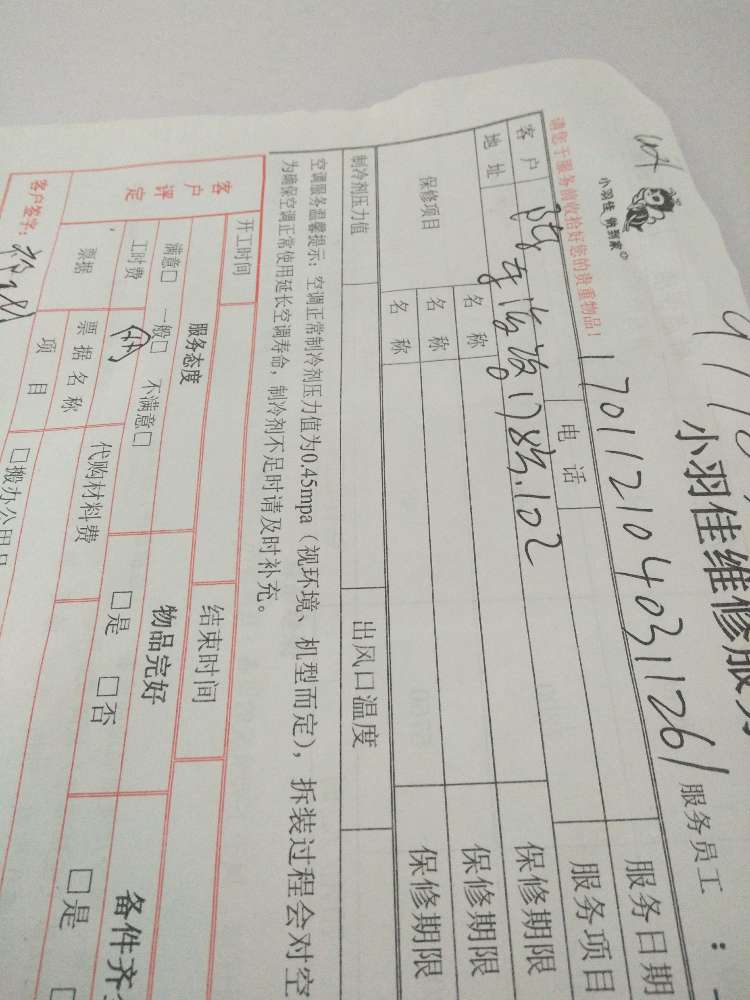 小羽佳维修服务
小羽佳 做到家
1701121040311261
服务员工：
请您于服务前收拾好您的贵重物品！
服务日期
客户
电话
服务项目
地址
102
保修项目
名称
保修期限
名称
保修期限
名称
保修期限
制冷剂压力值
出风口温度
空调服务温馨提示：空调正常制冷剂压力值为0.45mpa（视环境、机型而定），拆装过程会对空
为确保空调正常使用延长空调寿命，制冷剂不足时请及时补充。
开工时间
结束时间
客户评定
服务态度
物品完好
备件齐
满意□ 一般□ 不满意□
□是 □否
□是
工时费
代购材料费
票据
票据名称
项目
客户签字：
□搬办公用品